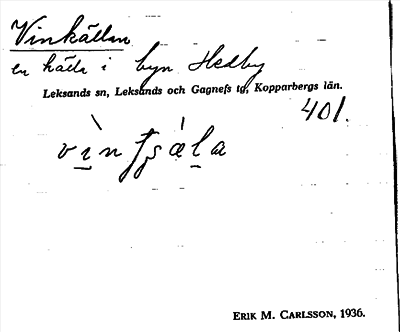 Vinkällan
en källa i byn Hedby
Leksands sn, Leksands och Gagnefs tg, Kopparbergs län.
401.
ERIK M. CARLSSON, 1936.